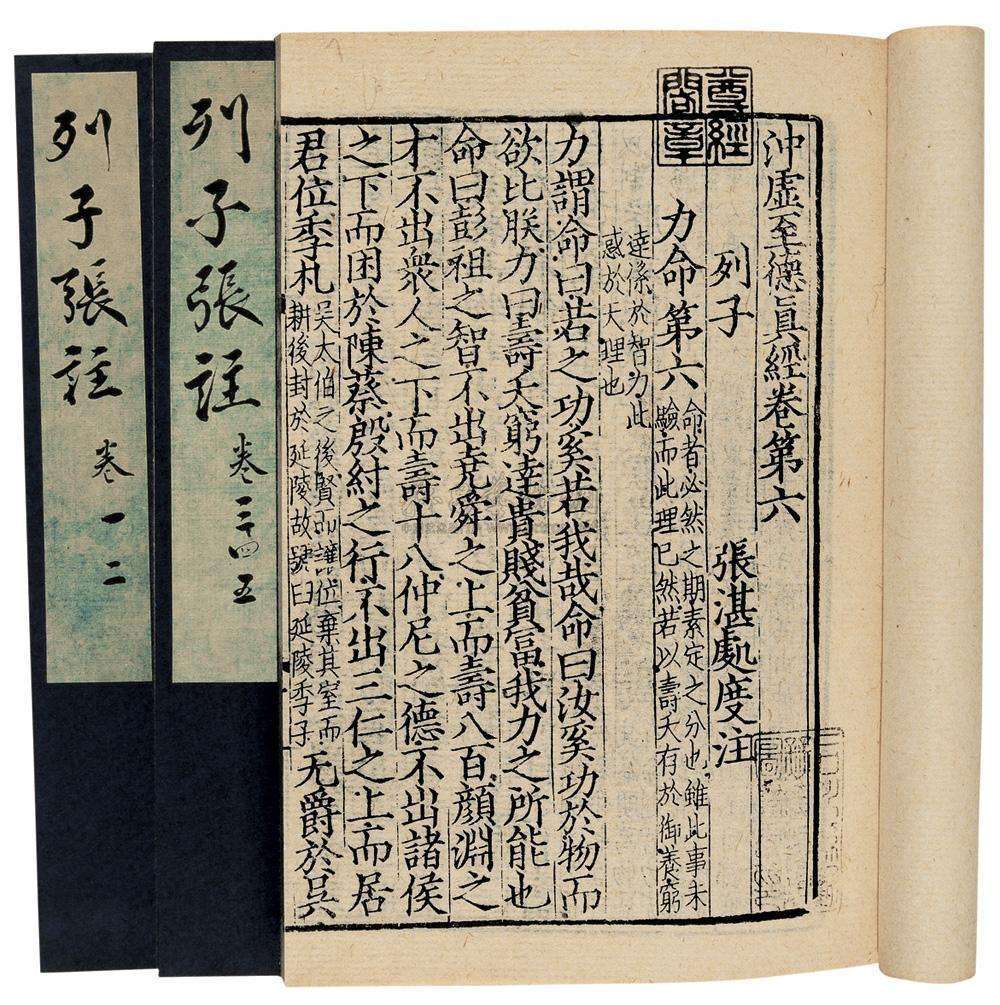 尊經閣章
沖虛至德眞經卷第六
列子 張湛處度注
力命第六
命者必然之期素定之分也雖此事未
驗而此理已然若以壽夭有於御養窮
達係於智力此
惑於大理也
力謂命曰若之功奚若我哉命曰汝奚功於物而
欲比朕力曰壽夭窮達貴賤貧富我力之所能也
命曰彭祖之智不出堯舜之上而壽八百顏淵之
才不出衆人之下而壽十八仲尼之德不出諸侯
之下而困於陳蔡殷紂之行不出三仁之上而居
君位季札
吴太伯之後賢而讓位棄其室而
耕後封於延陵故號曰延陵季子
无爵於吴
列子張註 卷三十四五
列子張註 卷一二